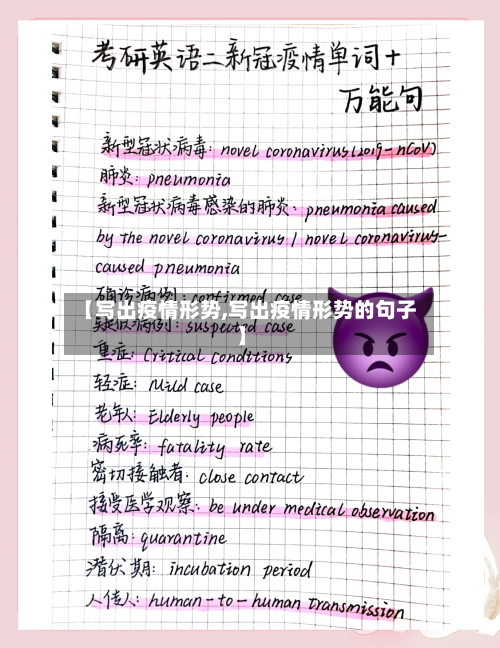 考研英语二新冠疫情单词+
万能句
新型冠状病毒: novel coronavirus(2019-nCoV)
肺炎: pneumonia
新型冠状病毒感染的肺炎: pneumonia caused
by the novel coronavirus / novel coronavirus-
caused pneumonia
确诊病例: confirmed case
【写出疫情形势,写出疫情形势的句子
】
疑似病例: suspected case
重症: Critical conditions
轻症: Mild case
老年人: Elderly people
病死率: fatality rate
密切接触者: close contact
接受医学观察: be under medical observation
隔离: quarantine
潜伏期: incubation period
人传人: human-to-human transmission